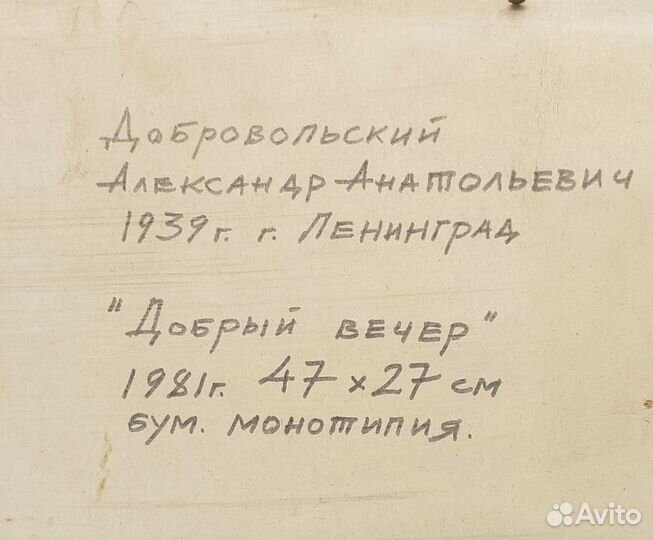 Добровольский
Александр Анатольевич
1939г. г. Ленинград
"Добрый вечер"
1981г. 47 x 27 см
бум. монотипия.
Avito